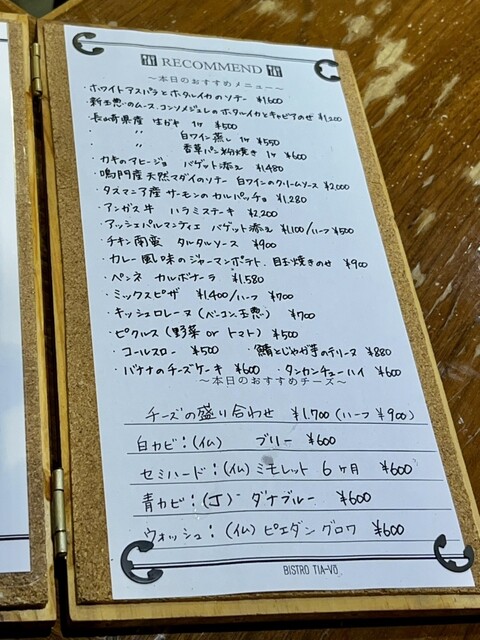 RECOMMEND
～本日のおすすめメニュー～
・ホワイトアスパラとホタルイカのソテー ¥1600
・新玉葱のムース、コンソメジュレのホタルイカとキャビアのせ ¥1,200
・長崎県産 生ガキ 1ヶ ¥500
・ 〃 白ワイン蒸し 1ヶ ¥550
・ 〃 香草パン粉焼き 1ヶ ¥600
・カキのアヒージョ バゲット添え ¥1,480
・鳴門産 天然マダイのソテー 白ワインのクリームソース ¥2,000
・タスマニア産 サーモンのカルパッチョ ¥1,280
・アンガス牛 ハラミステーキ ¥2,200
・アッシェパルマンティエ バゲット添え ¥1,100/ハーフ ¥500
・チキン南蛮 タルタルソース ¥900
・カレー風味のジャーマンポテト、目玉焼きのせ ¥900
・ペンネ カルボナーラ ¥1,580
・ミックスピザ ¥1,400/ハーフ ¥700
・キッシュロレーヌ (ベーコン、玉葱) ¥700
・ピクルス (野菜 or トマト) ¥500
・コールスロー ¥500 ・鯖とじゃが芋のテリーヌ ¥880
・バナナのチーズケーキ ¥600 ・タンカンチューハイ ¥600
～本日のおすすめチーズ～
チーズの盛り合わせ ¥1,700 (ハーフ ¥900)
白カビ：(仏) ブリー ¥600
セミハード：(仏) ミモレット 6ヶ月 ¥600
青カビ：(丁) ダナブルー ¥600
ウォッシュ：(仏) ピエダングロワ ¥600
BISTRO TIA-VO